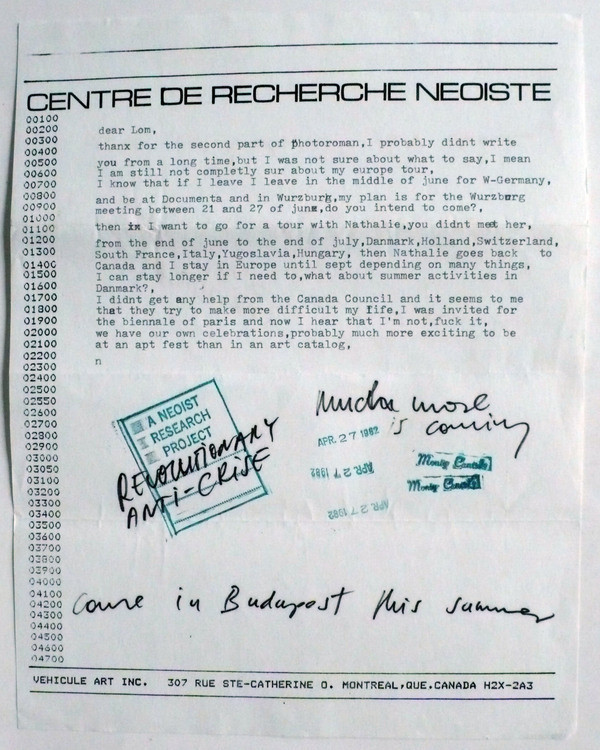 CENTRE DE RECHERCHE NEOISTE
00100
00200
00300
00400
00500
00600
00700
00800
00900
01000
01100
01200
01300
01400
01500
01600
01700
01800
01900
02000
02100
02200
02300
02400
02500
02550
02600
02700
02800
02900
03000
03050
03100
03200
03300
03400
03500
03600
03700
03800
03900
04000
04100
04200
04300
04400
04500
04600
04700
dear Lom,
thanx for the second part of photoroman,I probably didnt write
you from a long time,but I was not sure about what to say,I mean
I am still not completly sur about my europe tour,
I know that if I leave I leave in the middle of june for W-Germany,
and be at Documenta and in Wurzburg,my plan is for the Wurzburg
meeting between 21 and 27 of june,do you intend to come?,
then I want to go for a tour with Nathalie,you didnt meet her,
from the end of june to the end of july,Danmark,Holland,Switzerland,
South France,Italy,Yugoslavia,Hungary, then Nathalie goes back to
Canada and I stay in Europe until sept depending on many things,
I can stay longer if I need to,what about summer activities in
Danmark?,
I didnt get any help from the Canada Council and it seems to me
that they try to make more difficult my life,I was invited for
the biennale of paris and now I hear that I'm not,fuck it,
we have our own celebrations,probably much more exciting to be
at an apt fest than in an art catalog,
n
A NEOIST
RESEARCH
PROJECT
REVOLUTIONARY
ANTI-CRISE
much more
is coming
APR. 27 1982
APR. 27 1982
APR. 27 1982
Monty Cantsin
Monty Cantsin
come in Budapost this summer
VEHICULE ART INC. 307 RUE STE-CATHERINE O. MONTREAL,QUE.CANADA H2X-2A3